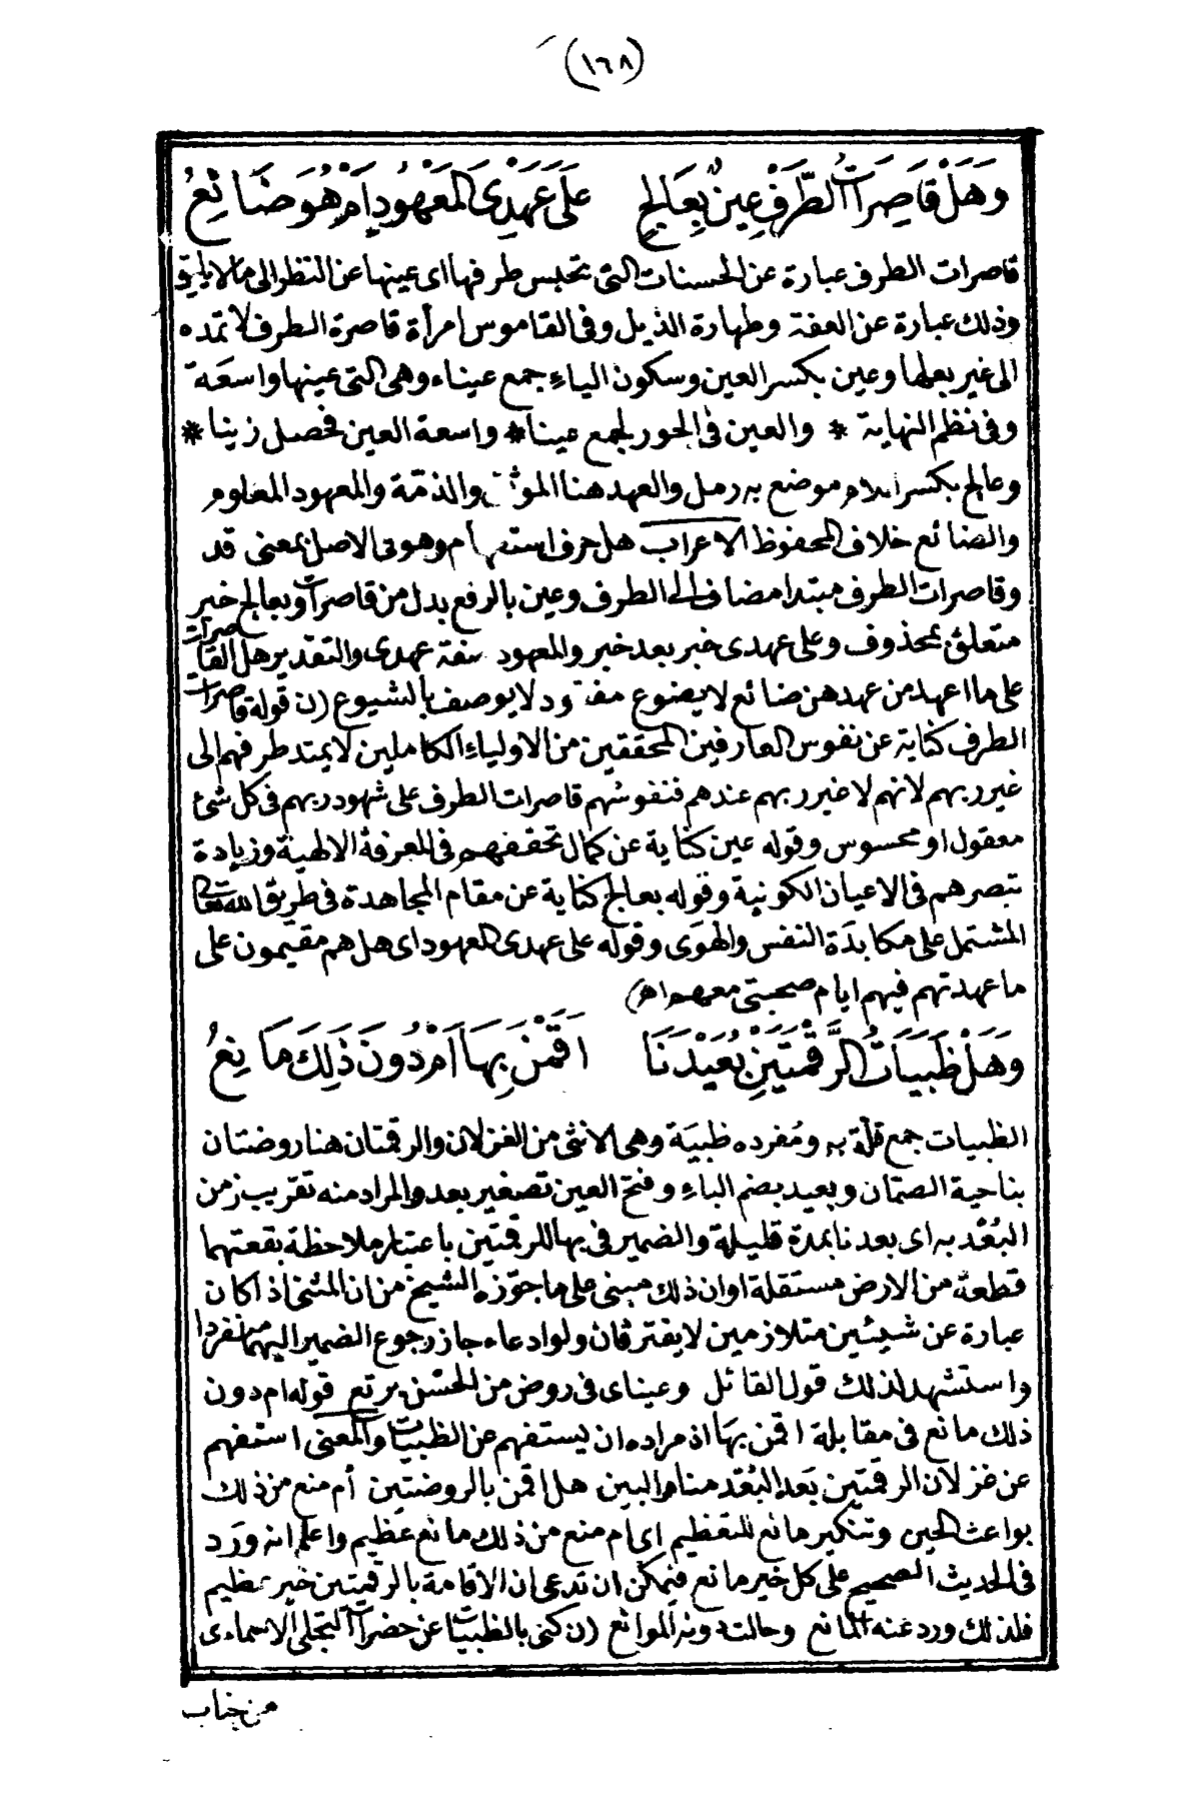 (١٦٨)
وَهَلْ قَاصِرَاتُ الطَّرْفِ عِينٌ بِعَالِجٍ عَلَى عَهْدِيَ الْمَعْهُودِ أَمْ هُوَ ضَائِعُ
قاصرات الطرف عبارة عن الحسنات التى تحبس طرفها اى عينها عن النظر الى ما لا يليق
وذلك عبارة عن العفة وطهارة الذيل وفى القاموس امرأة قاصرة الطرف لا تمده
الى غير بعلها وعين بكسر العين وسكون الياء جمع عيناء وهى التى عينها واسعة
وفى نظم النهاية * والعين فى الحور لجمع عينا * واسعة العين فحصل زينا *
وعالج بكسر اللام موضع به رمل والعهد هنا الموثق والذمّة والمعهود المعلوم
والضائع خلاف المحفوظ الاعراب هل حرف استفهام وهو فى الاصل بمعنى قد
وقاصرات الطرف مبتدا مضاف الى الطرف وعين بالرفع بدل من قاصرات وبعالج خبر
متعلق بمحذوف وعلى عهدى خبر بعد خبر والمعهود صفة عهدى والتقدير هل القاصرات
على ما اعهد من عهدهن ضائع لا يضوع مفقود لا يوصف بالشيوع (ن قوله قاصرات
الطرف كناية عن نفوس العارفين المحققين من الاولياء الكاملين لا يمتد طرفهم الى
غير ربهم لانهم لا غير ربهم عندهم فنفوسهم قاصرات الطرف على شهود ربهم فى كل شئ
معقول او محسوس وقوله عين كناية عن كمال تحققهم فى المعرفة الالهية وزيادة
تبصرهم فى الاعيان الكونية وقوله بعالج كناية عن مقام المجاهدة فى طريق الله تعالى
المشتمل على مكابدة النفس والهوى وقوله على عهدى المعهود اى هل هم مقيمون على
ما عهدتهم فيهم ايام صحبتى معهم اهـ)
وَهَلْ ظَبَيَاتُ الرَّقْمَتَيْنِ بُعَيْدَنَا أَقَمْنَ بِهَا أَمْ دُونَ ذَلِكَ مَانِعُ
الظبيات جمع قلّة به ومُفرده ظبية وهى الانثى من الغزلان والرقمتان هنا روضتان
بناحية الصمّان وبعيد بضم الباء وفتح العين تصغير بعد والمراد منه تقريب زمن
البُعْد به اى بعدنا بمدة قليلة والضمير فى بها للرقمتين باعتبار ملاحظة بقعتهما
قطعة من الارض مستقلة او ان ذلك مبنى على ما جوّزه الشيخ من ان المثنى اذا كان
عبارة عن شيئين متلازمين لا يفترقان ولو ادعاء جاز رجوع الضمير اليهما منفردا
واستشهد لذلك قول القائل وعيناى فى روض من الحسْن يرتع قوله ام دون
ذلك مانع فى مقابلة اقمن بها اذ مراده ان يستفهم عن الظبيات والمعنى استفهم
عن غزلان الرقمتين بَعد البُعْد منا والبين هل اقمن بالروضتين أم منع من ذلك
بواعث الحين وتنكير مانع للتعظيم اى ام منع من ذلك مانع عظيم واعلم انه ورَد
فى الحديث الصحيح على كل خير مانع فيمكن ان تدعى ان الاقامة بالرقمتين خير عظيم
فلذلك ورد عنه المانع وحالت دونه الموانع (ن كنى بالظبيات عن حضرات التجلى الاسماءى
من جناب